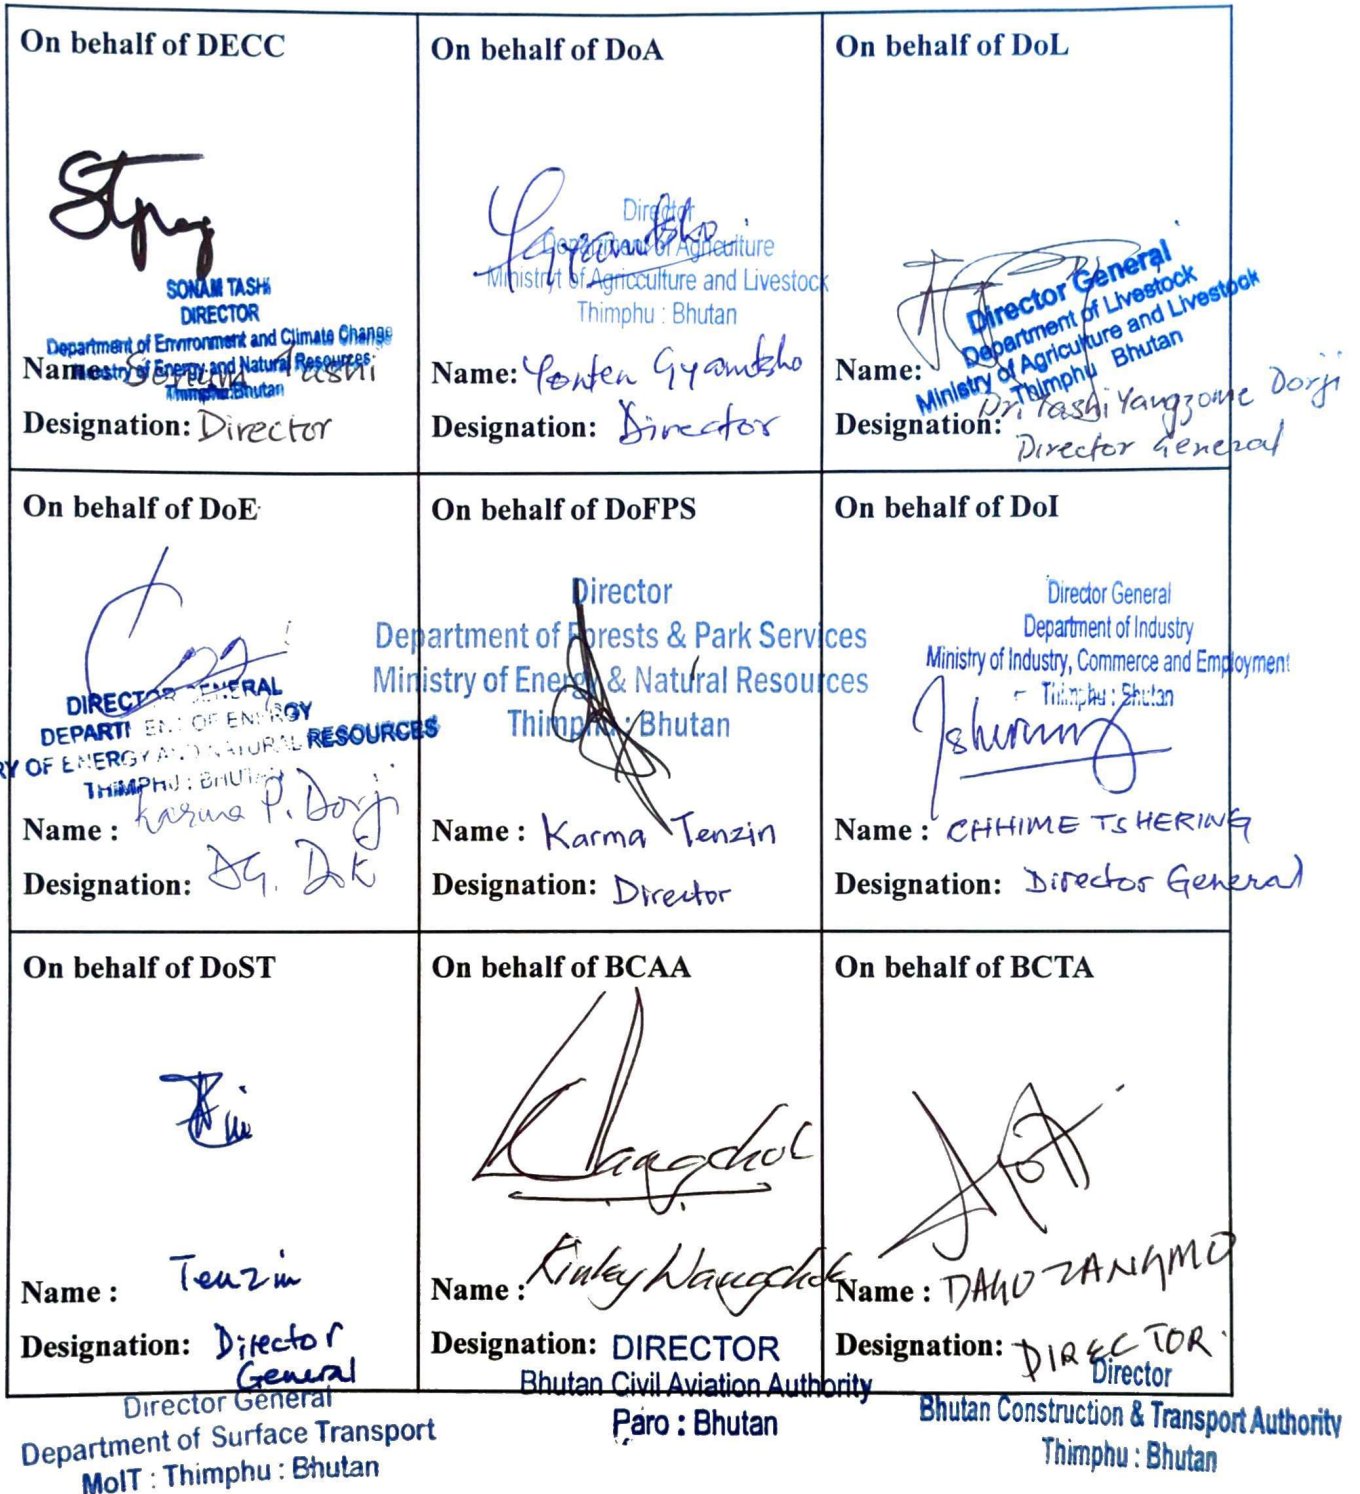 On behalf of DECC
SONAM TASHI
DIRECTOR
Department of Environment and Climate Change
Ministry of Energy and Natural Resources
Thimphu:Bhutan
Name: Sonam Tashi
Designation: Director
On behalf of DoA
Director
Department of Agriculture
Ministryt of Agricculture and Livestock
Thimphu : Bhutan
Name: Yonten Gyamtsho
Designation: Director
On behalf of DoL
Director General
Department of Livestock
Ministry of Agriculture and Livestock
Thimphu Bhutan
Name: Dr. Tashi Yangzome Dorji
Designation: Director General
On behalf of DoE
DIRECTOR GENERAL
DEPARTMENT OF ENERGY
RY OF ENERGY AND NATURAL RESOURCES
THIMPHU : BHUTAN
Name : Karma P. Dorji
Designation: DG. DoE
On behalf of DoFPS
Director
Department of Forests & Park Services
Ministry of Energy & Natural Resources
Thimphu : Bhutan
Name : Karma Tenzin
Designation: Director
On behalf of DoI
Director General
Department of Industry
Ministry of Industry, Commerce and Employment
Thimphu : Bhutan
Tshering
Name : CHHIME TSHERING
Designation: Director General
On behalf of DoST
Name : Tenzin
Designation: Director
General
Director General
Department of Surface Transport
MoIT : Thimphu : Bhutan
On behalf of BCAA
Wangchuk
Name : Kinley Wangchuk
Designation: DIRECTOR
Bhutan Civil Aviation Authority
Paro : Bhutan
On behalf of BCTA
Name : DAGO ZANGMO
Designation: DIRECTOR.
Director
Bhutan Construction & Transport Authority
Thimphu : Bhutan